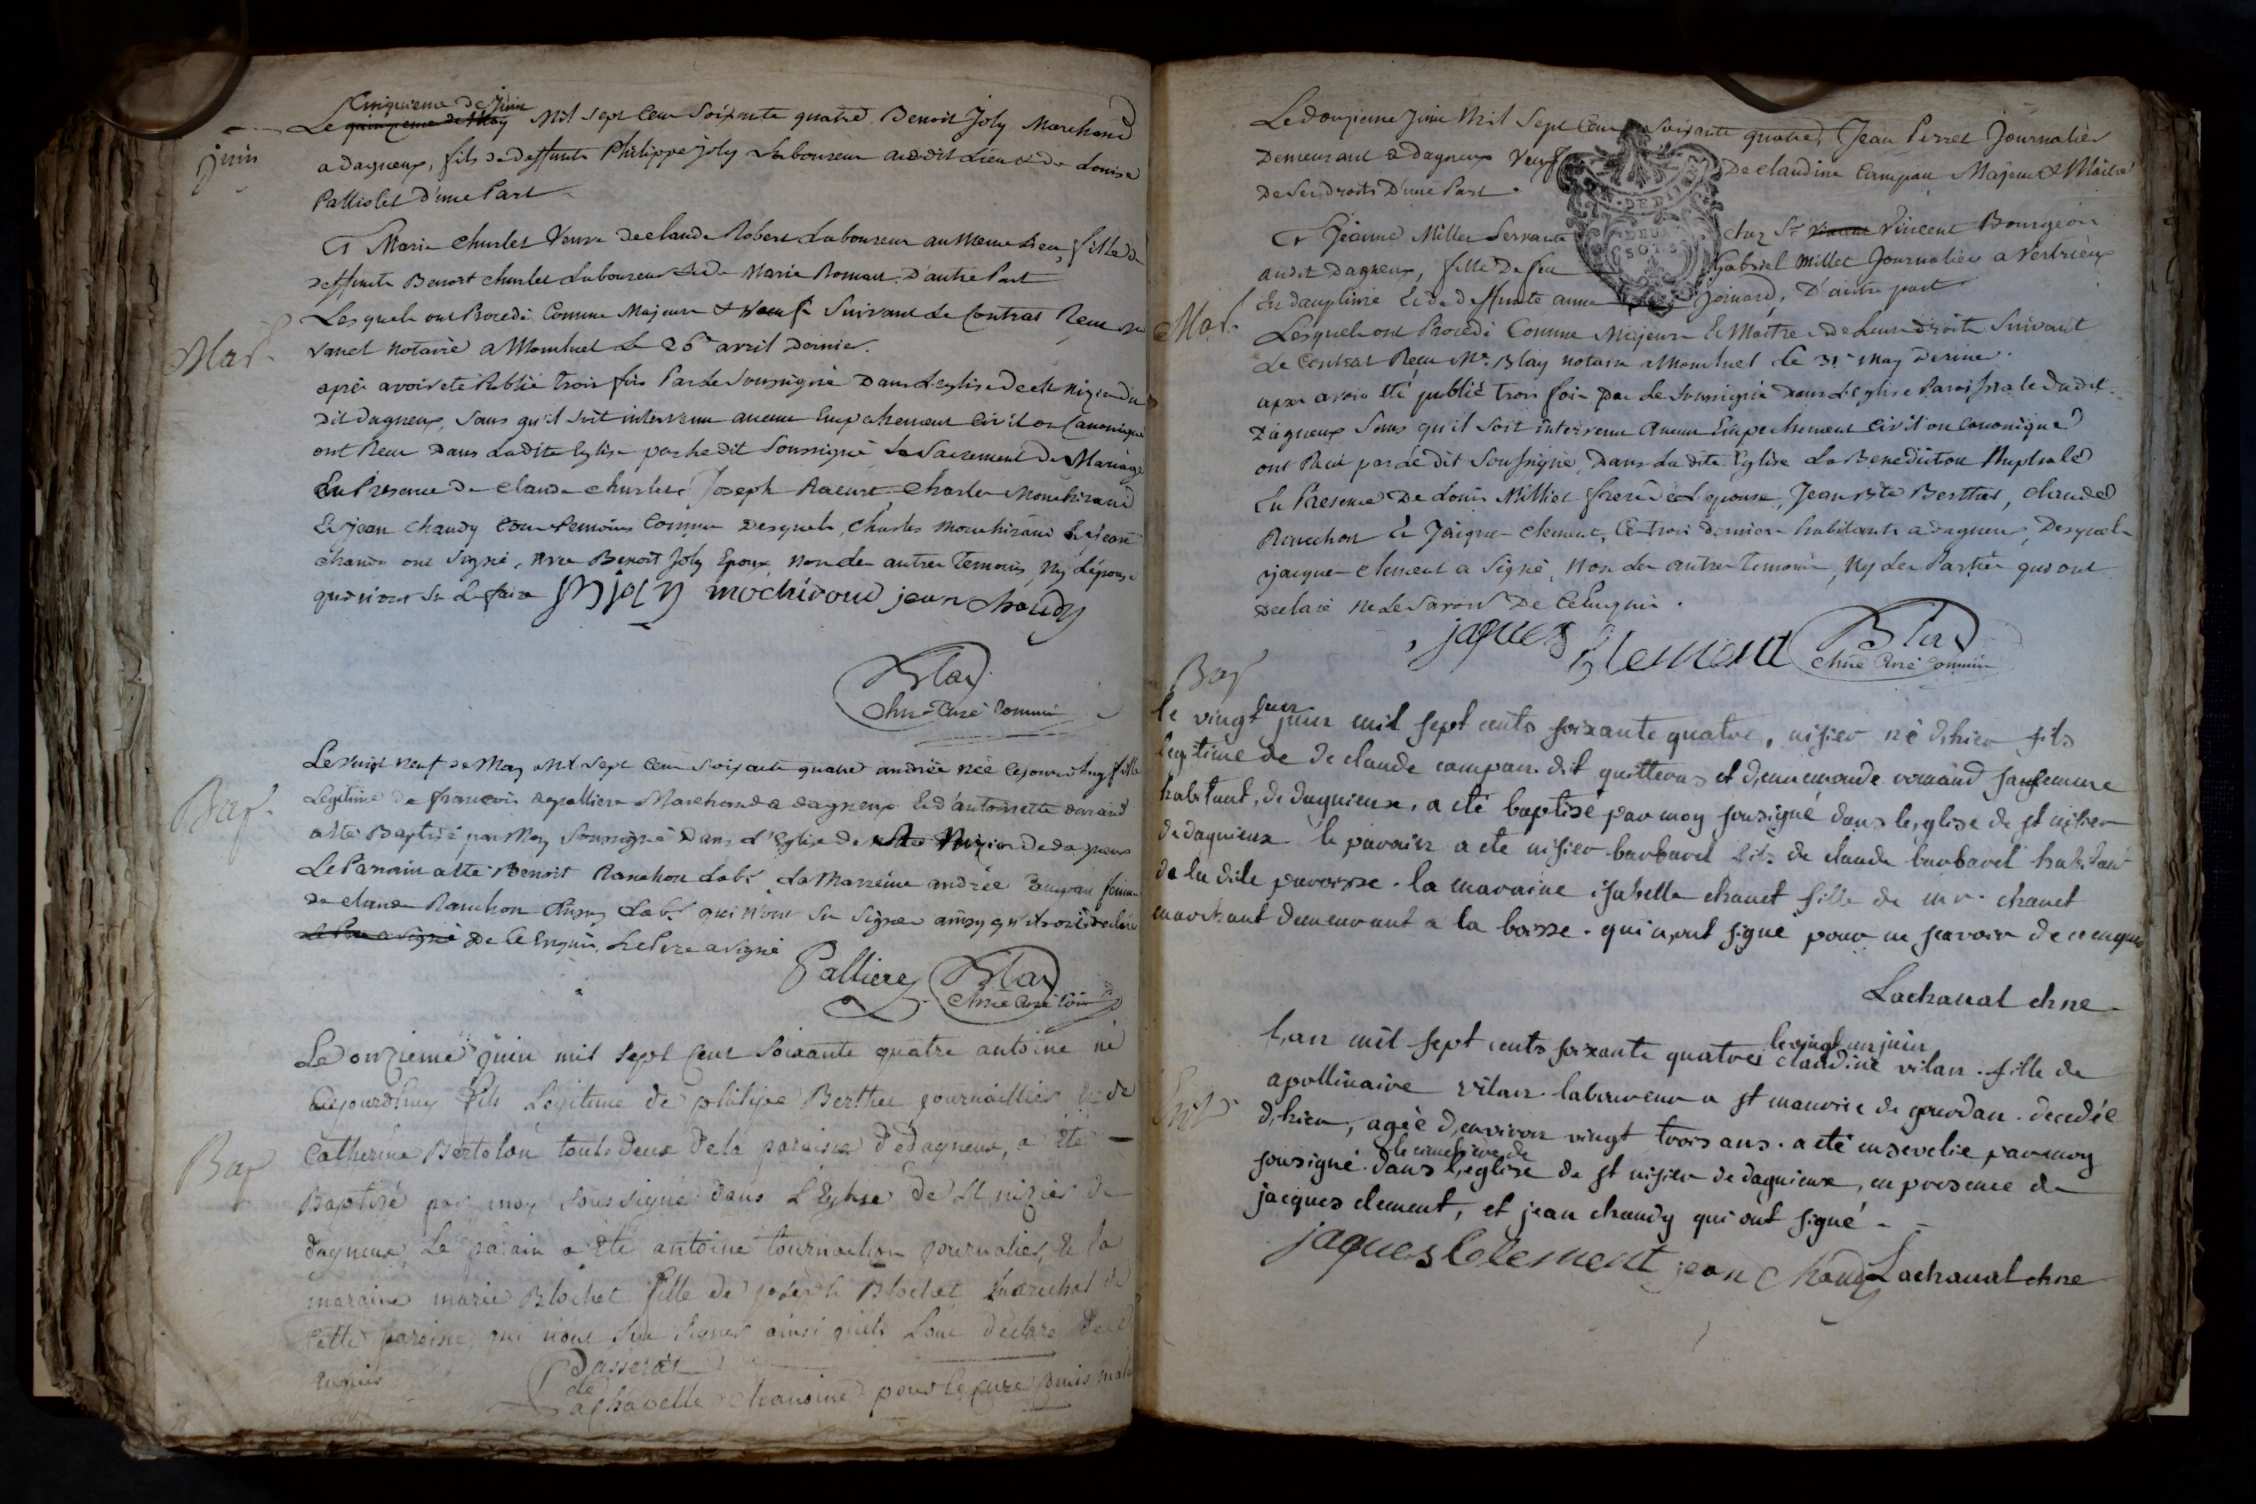 juin
Cinquieme de Juin
Le quinzieme de May Mil sept Cent Soixante quatre Benoit Joly Marchand
a dagneux, fils de deffunts Philippe Joly Laboureur audit Lieu & de Louise
Palliolet d'une Part
Mar.
Et Marie Churlet Veuve de claude Robert Laboureur au meme Lieu, fille de
deffunts Benoit churlet Laboureur & de Marie Romain D'autre Part
Lesquels ont Procedé Comme Majeurs & Suivant Le Contrat Recu Me
vanel Notaire a Montluel Le 26e avril Dernier.
aprés avoir eté Publié trois fois Par Le Soussigné Dans L'eglise de St Nizier du
dit Dagneux, Sans qu'il soit intervenu aucun Empechement Civil ou Canonique
ont Recu Dans Ladite Eglise par Le dit Soussigné Le Sacrement De Mariage
En Presence De Claude churlet, Joseph Charles Mouchiraud
Et jean chaudy tous temoins Connus Desquels, Charles mouchiraud & jean
chaudy ont Signé, avec Benoit Joly Epoux non les autres Temoins, Ny L'épouse
qui n'ont Su Le faire BJoly mochiroud jean chaudy
Blay
chne Curé Commis
Bap.
Le vingt neuf de May Mil Sept Cent Soixante quatre andrée née Cejourdhuy fille
Legitime de francois depalliere Marchand a dagneux Et d'antoinette durand
a eté Baptisé par Moy Soussigné Dans L'Eglise de St Nizier de dagneux
Le Parrain a eté Benoit Ranchon Labr La Marreine andrée Campan femme
de claude Ranchon Labr qui n'ont Su Signer ainsy qu'ils ont declaré
Le Pere a signé De Ce Enquis, Le Pere a signé
Palliere Blay
chne Curé Com
Bap
Le onzieme juin mil sept Cent Soixante quatre antoine né
Cejourdhuy fils Legitime de philipe Berthet journaillier & de
Catherine Bertolon touts deux de la paroisse de dagneux, a été
Baptizé par moy Soussigné dans L'Eglise de St nizier de
dagneux, Le parain a été antoine tournachon journalier, & la
maraine marie Blochet fille de joseph Blochet Marechal de
Cette paroisse, qui n'ont Sçu Signer ainsi qu'ils L'ont declaré de ce
enquis
Dasserat
de
La chapelle chanoine pour le curé
Le douzieme Juin Mil Sept Cent Soixante quatre, Jean Perret Journalier
Demeurant a Dagneux Veuf De claudine Campan Majeur & Maitre
De Ses Droits D'une Part.
Mar.
Et Jeanne Millet Servante chez Sr Vincent Bourgeois
audit Dagneux, fille De feu Gabriel Millet Journalier a Vertrieux
En dauphiné Et de deffunte anne Joinard, D'autre part
Lesquels ont Procedé Comme Majeurs Et Maitres De Leurs droits Suivant
Le Contrat Recu Me Blay notaire a Montluel Le 31e May Dernier.
apres avoir eté publié trois fois par Le Soussigné Dans L'Eglise Paroissiale Dudit
Dagneux Sans qu'il Soit intervenu Aucun Empechement Civil ou Canonique
ont Recu par Le dit Soussigné, Dans La dite Eglise La Benediction Nuptiale
En Presence De Louis Milliet frere de L'epouse, Jean Bte Berthet, claude
Ranchon Et Jacques Clement, Ces trois derniers habitants a dagneux, Desquels
jacques Clement a Signé, Non Les autres temoins, Ny Les Parties qui ont
Declaré Ne Le Savoir De Ce Enquis.
jaques Clement Blay
chne Curé Commis
Bap
le vingt juin mil sept cents soixante quatre, nisier né d'hier fils
legitime de de claude campan dit quitterus et d'ennemonde romand sa femme
habitant, de dagnieux, a eté baptisé par moy sousigné dans leglise de st nisier
de dagnieux le parain a eté nisier barbaret fils de claude barbaret habitant
de la dite paroisse. la maraine isabelle chanet fille de mr. chanet
marchant demeurant a la boisse. qui n,ont signé pour ne scavoir de ce enquis
Lachaval chne
Ent
l,an mil sept cents soixante quatre le vingt un juin claudine vilan. fille de
apollinaire vilan laboureur a st maurice de gourdan. decedée
d,hier, agée d,environ vingt trois ans. a eté ensevelie par moy
sousigné. dans le cimetiere de l,eglise de st nisier de dagnieux, en presence de
jacques clement, et jean chaudy qui ont signé.
jaques Clement jean chaudy Lachaval chne